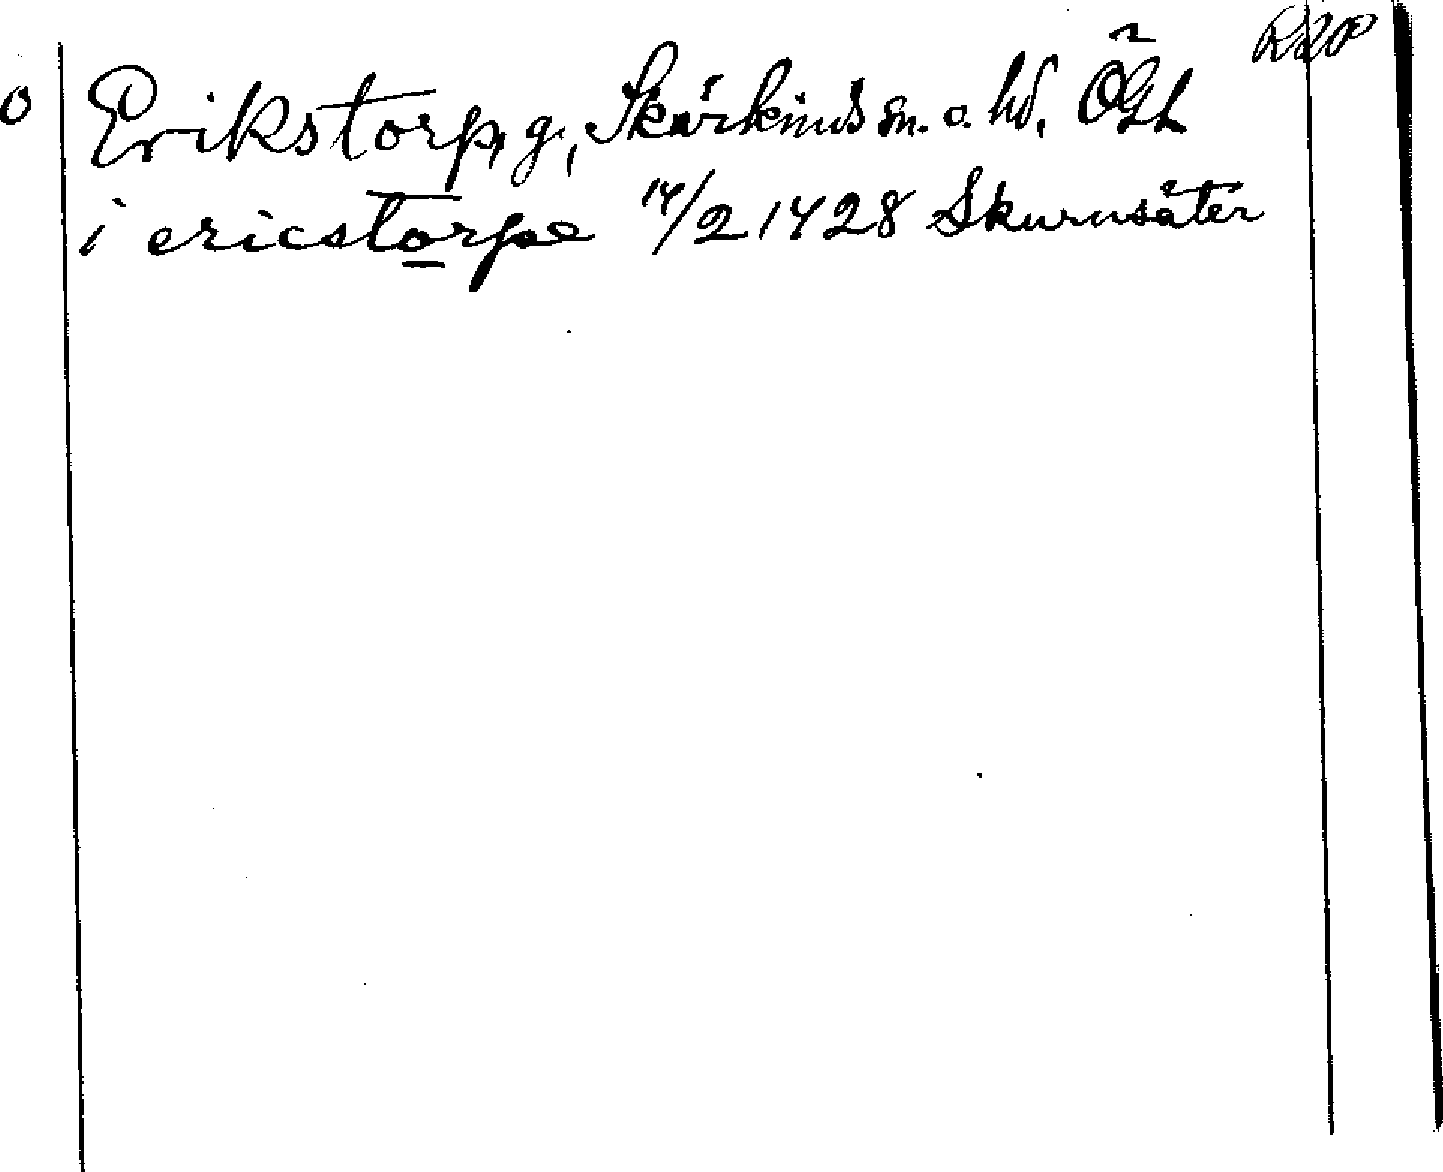 Erikstorp, g, Skärkinds sn. o. hd. ÖGL
i ericstorpe 14/2 1428 Skurusäter